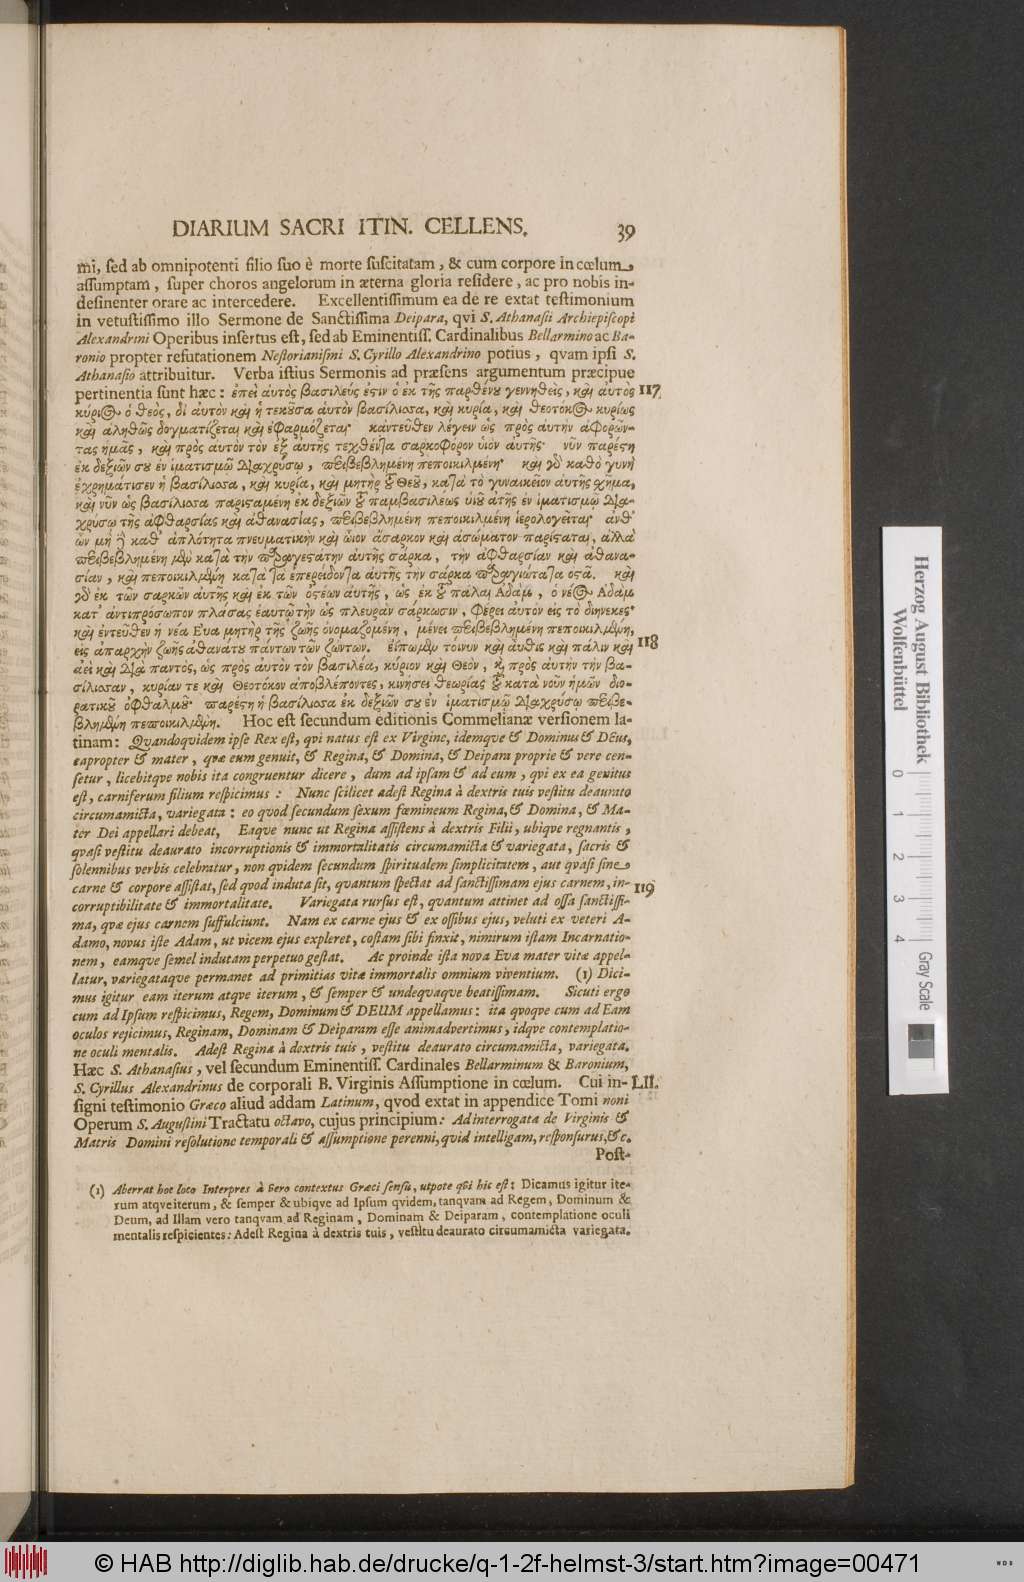 DIARIUM SACRI ITIN. CELLENS. 39
mi, ſed ab omnipotenti filio ſuo è morte ſuſcitatam, & cum corpore in cœlum
aſſumptam, ſuper choros angelorum in æterna gloria reſidere, ac pro nobis in-
deſinenter orare ac intercedere. Excellentiſſimum ea de re extat teſtimonium
in vetuſtiſſimo illo Sermone de Sanctiſſima Deipara, qvi S. Athanaſii Archiepiſcopi
Alexandrini Operibus inſertus eſt, ſed ab Eminentiſſ. Cardinalibus Bellarmino ac Ba-
ronio propter refutationem Neſtorianiſmi S. Cyrillo Alexandrino potius, qvam ipſi S.
Athanaſio attribuitur. Verba iſtius Sermonis ad præſens argumentum præcipue
pertinentia ſunt hæc: ἐπεὶ ἀυτὸς βασιλεύς ἐςιν ὁ ἐκ τῆς παρθένου γεννηθεὶς, καὶ ἀυτὸς 117
κύριος ὁ θεὸς, δι ἀυτὸν καὶ ἡ τεκοῦσα ἀυτὸν βασίλισσα, καὶ κυρία, καὶ θεοτόκος κυρίως
καὶ αληθῶς δογματίζεται καὶ ἐφαρμόζεται· κἀντεῦθεν λέγειν ὡς πρὸς αυτὴν ἀφορῶν-
τας ἡμᾶς, καὶ πρὸς ἀυτὸν τὸν ἐξ ἀυτῆς τεχθέντα σαρκοφόρον ὑιὸν ἀυτῆς· νῦν παρέςη
ἐκ δεξιῶν σου ἐν ἱματισμῷ διαχρύσῳ, περιβεβλημένη πεποικιλμένη· καὶ γὸ καθὸ γυνὴ
ἐχρημάτισεν ἡ βασίλισσα, καὶ κυρία, καὶ μητὴρ τοῦ Θεοῦ, κατὰ τὸ γυναικεῖον ἀυτῆς χῆμα,
καὶ νῦν ὡς βασίλισσα παριςαμένη ἐκ δεξιῶν τοῦ παμβασιλέως υἱοῦ ἀτῆς ἐν ἱματισμῷ δια-
χρύσῳ τῆς ἀφθαρσίας καὶ ἀθανασίας, περιβεβλημένη πεποικιλμένη ἱερολογεῖται· ἀνθ᾽
ὧν μὴ καθ᾽ ἁπλότητα πνευματικὴν καὶ ὧιον ἄσαρκον καὶ ἀσώματον παρίςαται, ἀλλὰ
περιβεβλημένη μὲν κατὰ τὴν παναγεςάτην ἀυτῆς σάρκα, τὴν ἀφθαρσίαν καὶ ἀθανα-
σίαν, καὶ πεποικιλμένη κατὰ τὰ ἐπερείδοντα ἀυτῆς τὴν σάρκα παναγιώτατα ὀςᾶ. καὶ
γὸ ἐκ τῶν σαρκῶν ἀυτῆς καὶ ἐκ τῶν ὀςέων ἀυτῆς, ὡς ἐκ τοῦ πάλαι Αδὰμ, ὁ νέος Αδὰμ
κατ᾽ ἀντιπρόσωπον πλάσας ἑαυτῷ τὴν ὡς πλευρὰν σάρκωσιν, φέρει ἀυτὸν εἰς τὸ διηνεκες·
καὶ ἐντεῦθεν ἡ νέα Ευα μητὴρ τῆς ζωῆς ὀνομαζομένη, μένει περιβεβλημένη πεποικιλμένη,
εἰς ἀπαρχὴν ζωῆς ἀθανάτου πάντων τῶν ζώντων. εἴπωμεν τοίνυν καὶ ἀυθις καὶ πάλιν καὶ 118
ἀεὶ καὶ διὰ παντὸς, ὡς πρὸς ἀυτὸν τὸν βασιλέα, κύριον καὶ Θεὸν, καὶ πρὸς ἀυτὴν τὴν βα-
σίλισσαν, κυρίαν τε καὶ Θεοτόκον ἀποβλέποντες, κινήσει θεωρίας τοῦ κατὰ νοῦν ἡμῶν διο-
ρατικοῦ ὀφθαλμοῦ· παρέςη ἡ βασίλισσα ἐκ δεξιῶν σου ἐν ἱματισμῷ διαχρύσῳ περιβε-
βλημένη πεποικιλμένη. Hoc eſt ſecundum editionis Commelianæ verſionem la-
tinam: Qvandoqvidem ipſe Rex eſt, qvi natus eſt ex Virgine, idemqve & Dominus & Deus,
eapropter & mater, qvæ eum genuit, & Regina, & Domina, & Deipara proprie & vere cen-
ſetur, licebitqve nobis ita congruentur dicere, dum ad ipſam & ad eum, qvi ex ea genitus
eſt, carniferum filium reſpicimus: Nunc ſcilicet adeſt Regina à dextris tuis veſtitu deaurato
circumamicta, variegata: eo qvod ſecundum ſexum fœmineum Regina, & Domina, & Ma-
ter Dei appellari debeat, Eaqve nunc ut Regina aſſiſtens à dextris Filii, ubiqve regnantis,
qvaſi veſtitu deaurato incorruptionis & immortalitatis circumamicta & variegata, ſacris &
ſolennibus verbis celebratur, non qvidem ſecundum ſpiritualem ſimplicitatem, aut qvaſi ſine
carne & corpore aſſiſtat, ſed qvod induta ſit, qvantum ſpectat ad ſanctiſſimam ejus carnem, in- 119
corruptibilitate & immortalitate. Variegata rurſus eſt, qvantum attinet ad oſſa ſanctiſſi-
ma, qvæ ejus carnem ſuffulciunt. Nam ex carne ejus & ex oſſibus ejus, veluti ex veteri A-
damo, novus iſte Adam, ut vicem ejus expleret, coſtam ſibi finxit, nimirum iſtam Incarnatio-
nem, eamqve ſemel indutam perpetuo geſtat. Ac proinde iſta nova Eva mater vitæ appel-
latur, variegataqve permanet ad primitias vitæ immortalis omnium viventium. (1) Dici-
mus igitur eam iterum atqve iterum, & ſemper & undeqvaqve beatiſſimam. Sicuti ergo
cum ad Ipſum reſpicimus, Regem, Dominum & DEUM appellamus: ita qvoqve cum ad Eam
oculos rejicimus, Reginam, Dominam & Deiparam eſſe animadvertimus, idqve contemplatio-
ne oculi mentalis. Adeſt Regina à dextris tuis, veſtitu deaurato circumamicta, variegata.
Hæc S. Athanaſius, vel ſecundum Eminentiſſ. Cardinales Bellarminum & Baronium,
S. Cyrillus Alexandrinus de corporali B. Virginis Aſſumptione in cœlum. Cui in- LII.
ſigni teſtimonio Græco aliud addam Latinum, qvod extat in appendice Tomi noni
Operum S. Auguſtini Tractatu octavo, cujus principium: Ad interrogata de Virginis &
Matris Domini reſolutione temporali & aſſumptione perenni, qvid intelligam, reſponſurus, &c.
Poſt-
(1) Aberrat hoc loco Interpres à vero contextus Græci ſenſu, utpote qvi hic eſt: Dicamus igitur ite-
rum atqve iterum, & ſemper & ubiqve ad Ipſum qvidem, tanqvam ad Regem, Dominum &
Deum, ad Illam vero tanqvam ad Reginam, Dominam & Deiparam, contemplatione oculi
mentalis reſpicientes: Adeſt Regina à dextris tuis, veſtitu deaurato circumamicta variegata.
Herzog August Bibliothek
Wolfenbüttel
0 1 2 3 4
Gray Scale
© HAB http://diglib.hab.de/drucke/q-1-2f-helmst-3/start.htm?image=00471